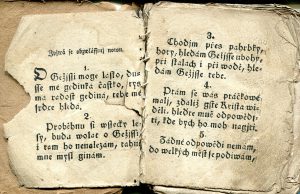 Zpívá se obzwlásstnj notau.
1.
O Gežjssi moge lásko, dus-
se mé gedinká částko, tys
má radost gediná, tebe mé
srdce hledá.
2.
Proběhnu si wssecky le-
sy, budu wolat o Gežjssi
i tam ho nenalezám, nahu
mne mysl ginám.
3.
Chodjm přes pahrbky,
hory, hledám Gežjsse ubohý,
při skalách i při wodě, hle-
dám Gežjsse tebe.
4.
Ptám se wás ptáčkowé
malj, zdaliž gste Krista wi-
děli, hledte mně odpowědě-
ti, kde bych ho moh nagjti.
5.
Žádné odpowědi nemám,
do welkých měst se podjwám,